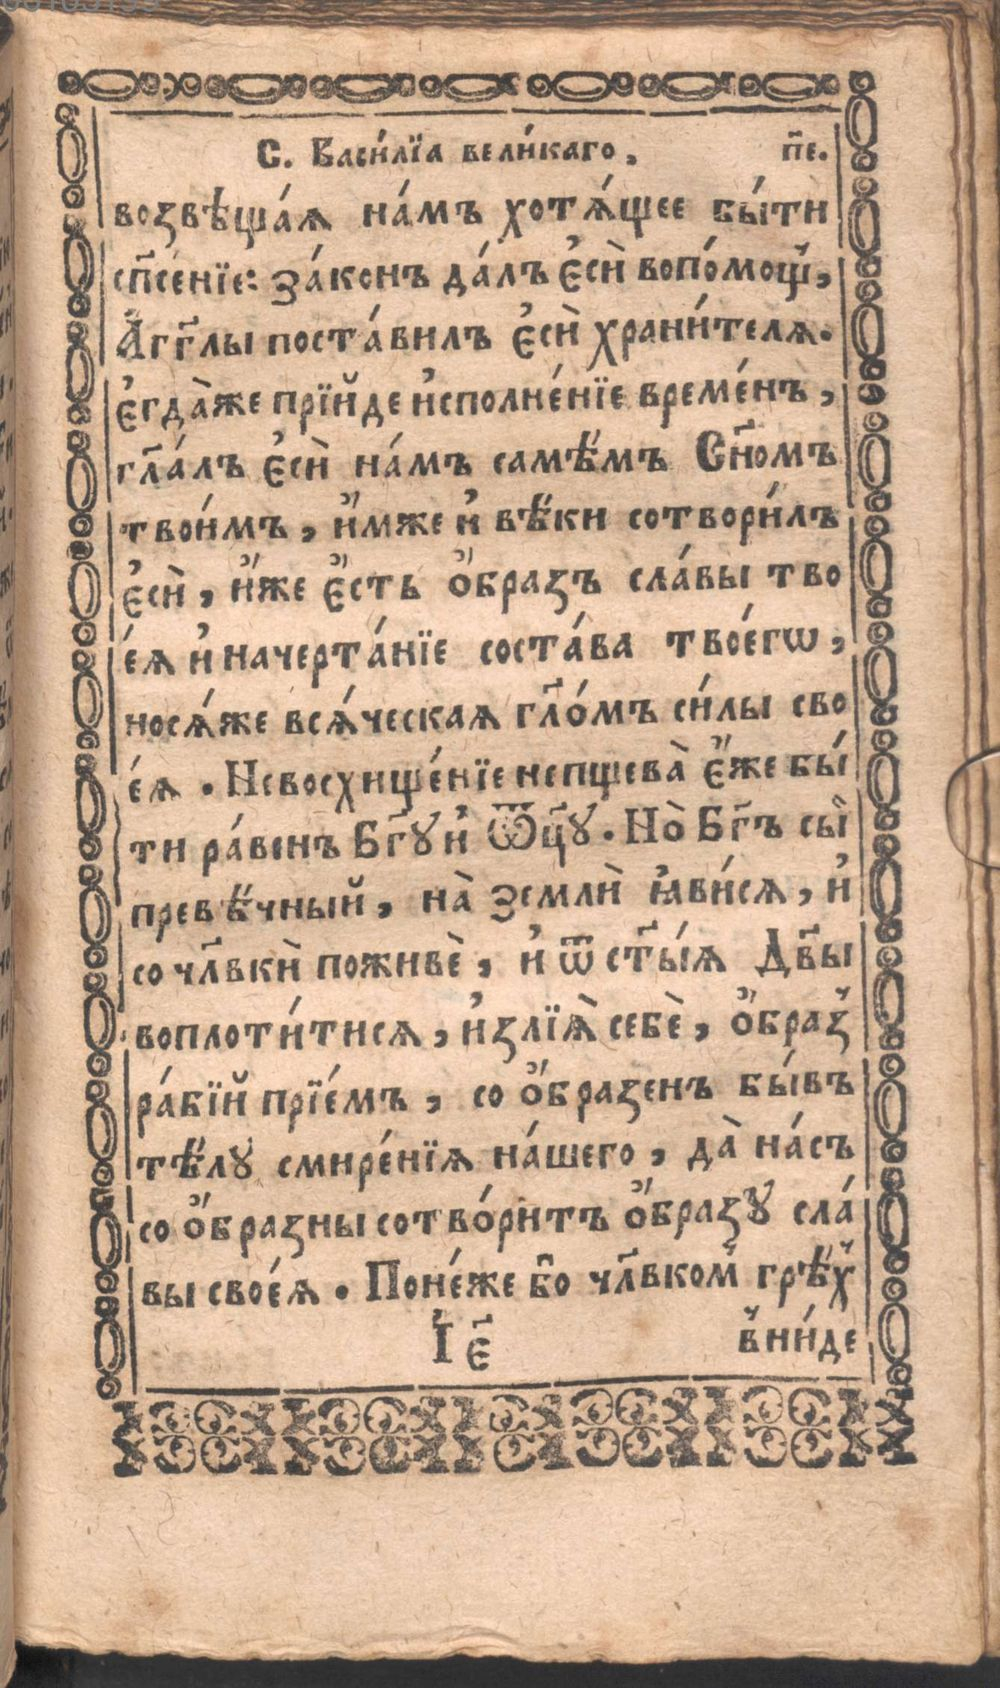 С. Васи́лїа вели́каго, п҃е.
возвѣща́ѧ на́мъ хотѧ́щее бы́ти
сп҃се́нїе: за́конъ да́лъ є҆сѝ вопо́мощ̾,
А҆́гг҃лы поста́вилъ є҆сѝ храни́телѧ.
є҆гда̀же прїи́де и҆сполне́нїе време́нъ,
гл҃а́лъ є҆сѝ на́мъ самѣ́мъ Сн҃омъ
твои́мъ, и҆́мже и҆ вѣ́ки сотвори́лъ
є҆сѝ, и҆́же є҆́сть ѻ҆́бразъ сла́вы тво
е́ѧ и҆ начерта́нїе соста́ва твоегѡ̀,
носѧ́же всѧ́ческаѧ гл҃о́мъ си́лы сво
е́ѧ. Невосхище́нїе непщева̀ є҆́же бы́
ти ра́венъ Бг҃ꙋ и҆ Ѿц҃ꙋ. Но̀ Бг҃ъ сы̀
превѣ́чный, на̀ землѝ ꙗ҆ви́сѧ, и҆
со чл҃вкѝ поживѐ, и҆ ѿ ст҃ы́ѧ Дв҃ы
воплоти́тисѧ, и҆злїѧ̀ себѐ, ѻ҆́браз̾
ра́бїй прїе́мъ, со ѻ҆́бразенъ бы́въ
тѣ́лꙋ смире́нїѧ на́шего, да̀ на́съ
со ѻ҆́бразны сотво́ритъ ѻ҆́бразꙋ сла́
вы свое́ѧ. Поне́же бо чл҃вком̾ грѣ́х̾
І҆ Є҃ в̾ни́де